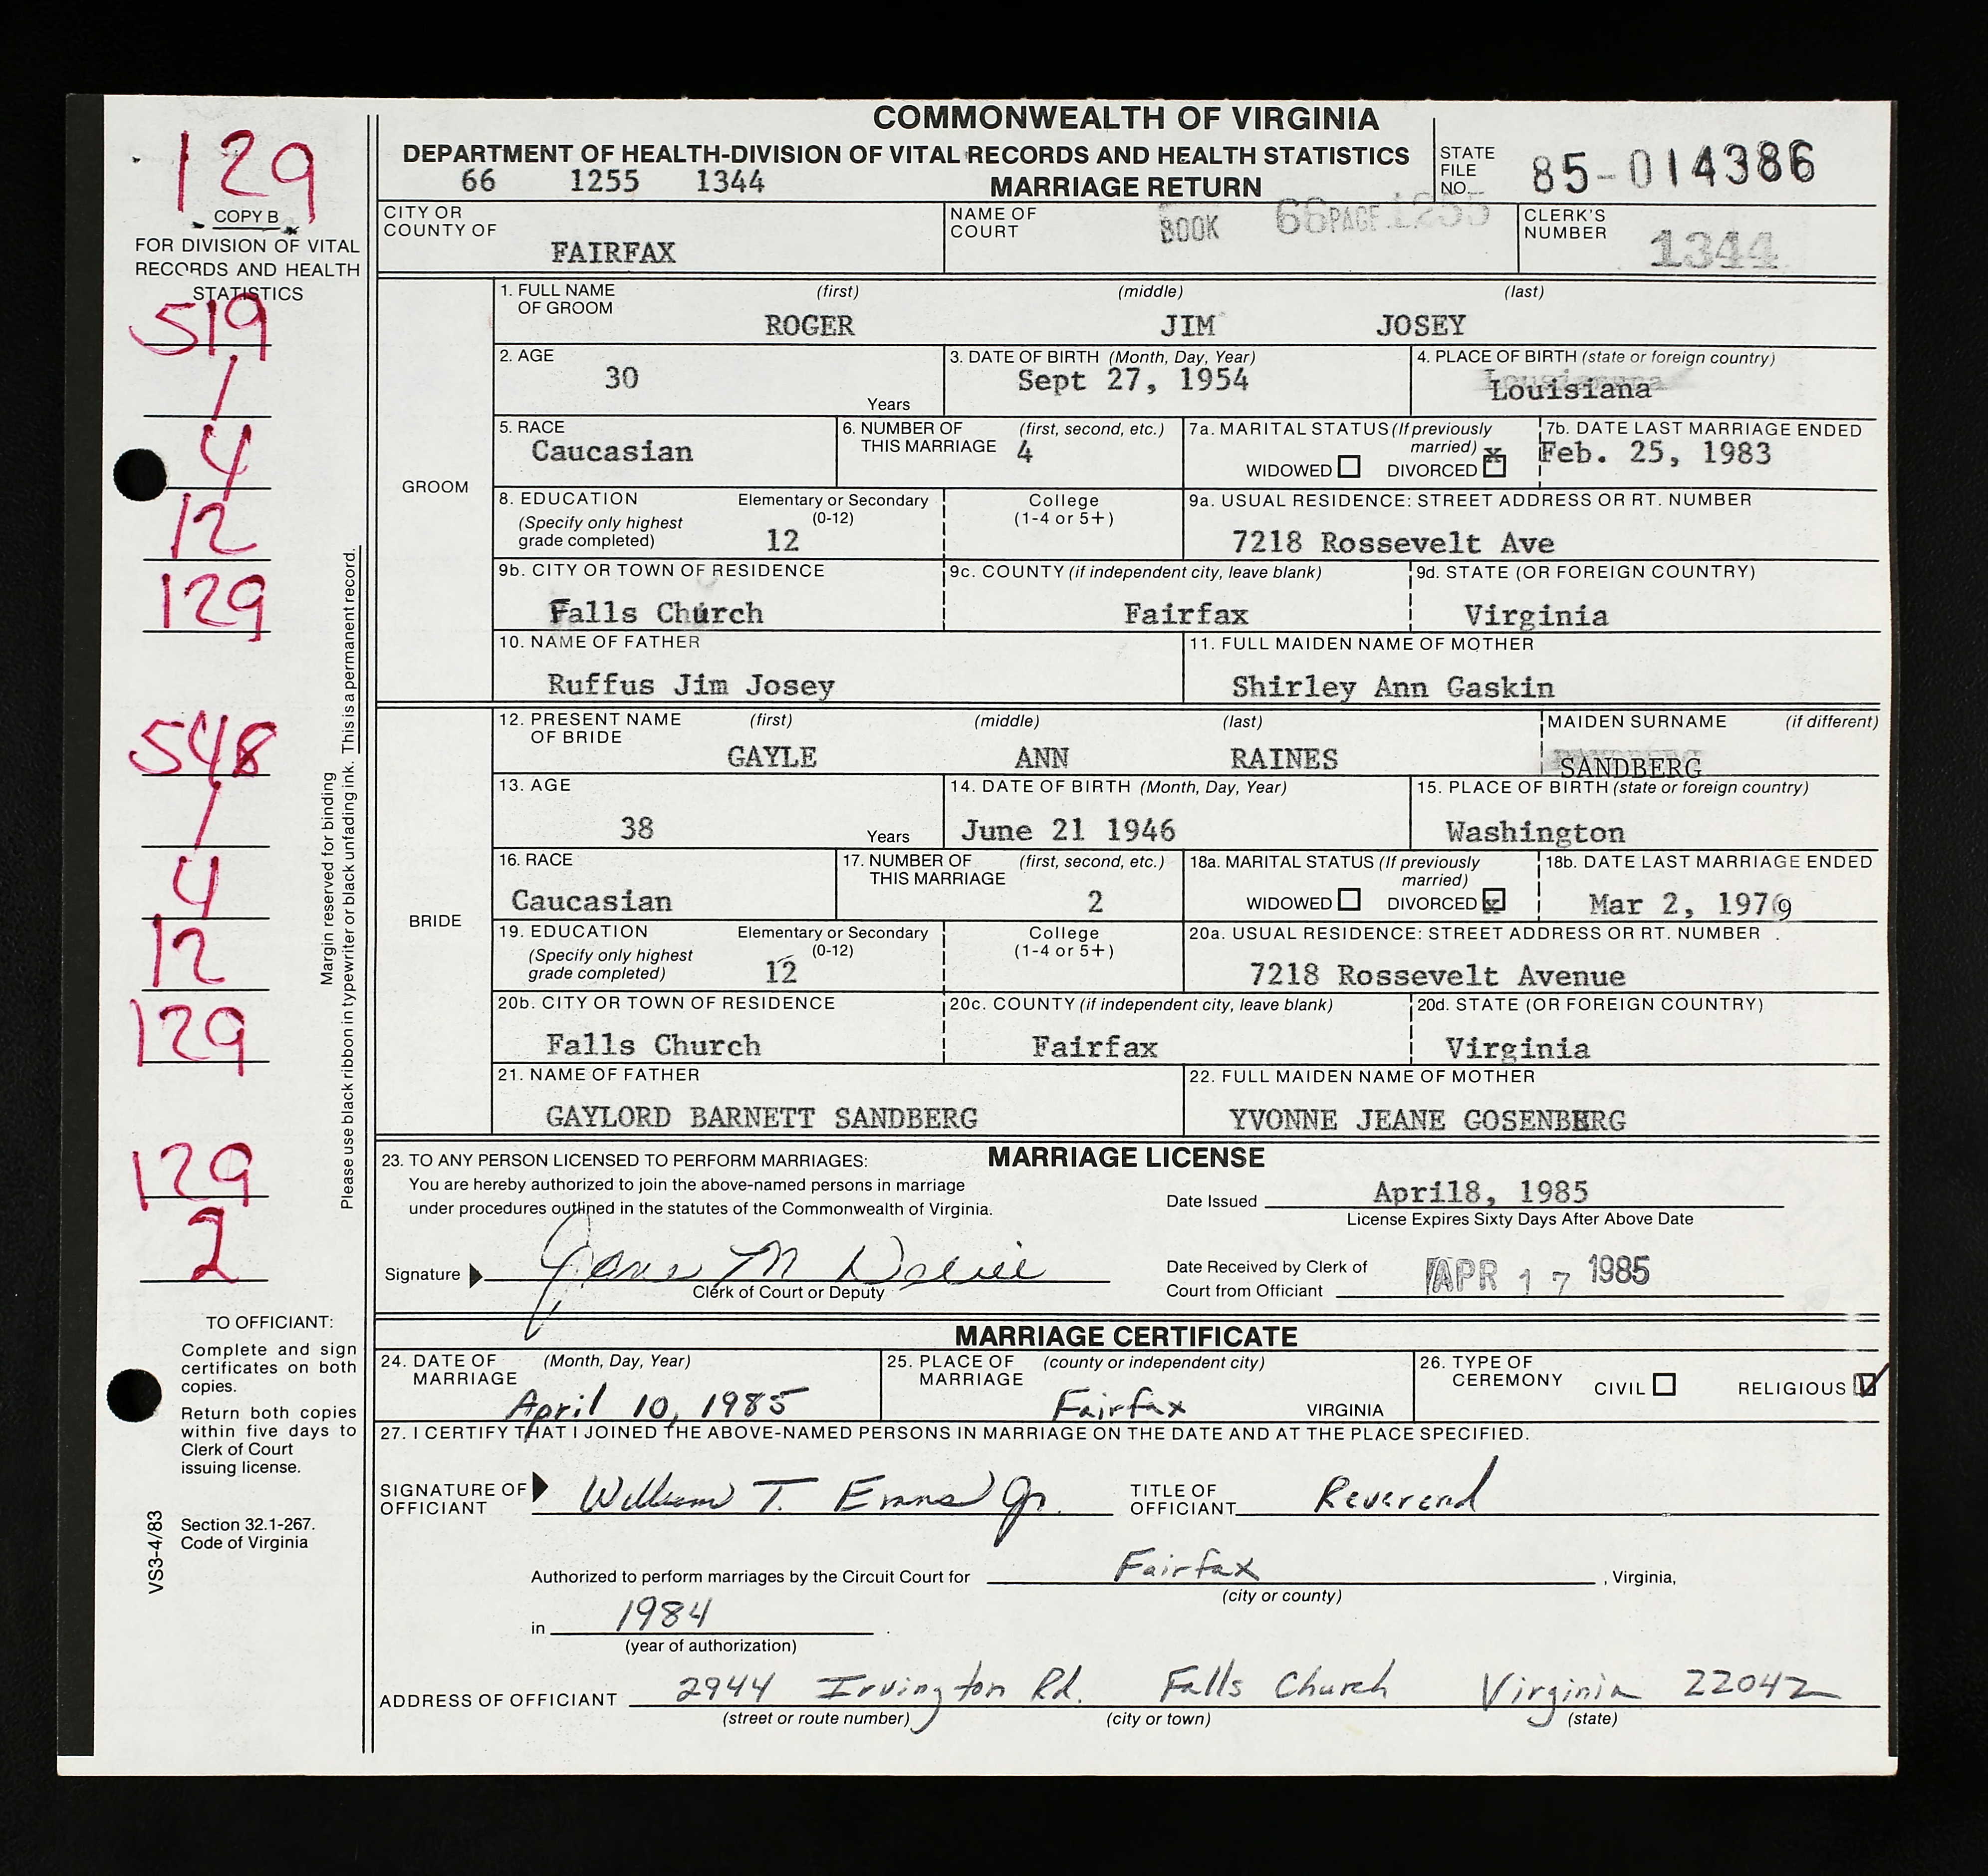 COMMONWEALTH OF VIRGINIA
DEPARTMENT OF HEALTH-DIVISION OF VITAL RECORDS AND HEALTH STATISTICS
66 1255 1344 MARRIAGE RETURN
STATE FILE NO. 85-014386
129
COPY B
FOR DIVISION OF VITAL
RECORDS AND HEALTH
STATISTICS
519
1
4
12
129
548
1
4
12
129
129
2
Margin reserved for binding
Please use black ribbon in typewriter or black unfading ink. This is a permanent record.
TO OFFICIANT:
Complete and sign
certificates on both
copies.
Return both copies
within five days to
Clerk of Court
issuing license.
Section 32.1-267.
Code of Virginia
VS3-4/83
CITY OR COUNTY OF FAIRFAX
NAME OF COURT BOOK 66 PAGE 1255
CLERK'S NUMBER 1344
GROOM
1. FULL NAME OF GROOM (first) (middle) (last)
ROGER JIM JOSEY
2. AGE 30 Years
3. DATE OF BIRTH (Month, Day, Year) Sept 27, 1954
4. PLACE OF BIRTH (state or foreign country) Louisiana
5. RACE Caucasian
6. NUMBER OF THIS MARRIAGE (first, second, etc.) 4
7a. MARITAL STATUS (If previously married) WIDOWED DIVORCED x
7b. DATE LAST MARRIAGE ENDED Feb. 25, 1983
8. EDUCATION (Specify only highest grade completed) Elementary or Secondary (0-12) 12
College (1-4 or 5+)
9a. USUAL RESIDENCE: STREET ADDRESS OR RT. NUMBER 7218 Rossevelt Ave
9b. CITY OR TOWN OF RESIDENCE Falls Church
9c. COUNTY (if independent city, leave blank) Fairfax
9d. STATE (OR FOREIGN COUNTRY) Virginia
10. NAME OF FATHER Ruffus Jim Josey
11. FULL MAIDEN NAME OF MOTHER Shirley Ann Gaskin
BRIDE
12. PRESENT NAME OF BRIDE (first) (middle) (last)
GAYLE ANN RAINES
MAIDEN SURNAME (if different) SANDBERG
13. AGE 38 Years
14. DATE OF BIRTH (Month, Day, Year) June 21 1946
15. PLACE OF BIRTH (state or foreign country) Washington
16. RACE Caucasian
17. NUMBER OF THIS MARRIAGE (first, second, etc.) 2
18a. MARITAL STATUS (If previously married) WIDOWED DIVORCED x
18b. DATE LAST MARRIAGE ENDED Mar 2, 1979
19. EDUCATION (Specify only highest grade completed) Elementary or Secondary (0-12) 12
College (1-4 or 5+)
20a. USUAL RESIDENCE: STREET ADDRESS OR RT. NUMBER 7218 Rossevelt Avenue
20b. CITY OR TOWN OF RESIDENCE Falls Church
20c. COUNTY (if independent city, leave blank) Fairfax
20d. STATE (OR FOREIGN COUNTRY) Virginia
21. NAME OF FATHER GAYLORD BARNETT SANDBERG
22. FULL MAIDEN NAME OF MOTHER YVONNE JEANE GOSENBERG
MARRIAGE LICENSE
23. TO ANY PERSON LICENSED TO PERFORM MARRIAGES:
You are hereby authorized to join the above-named persons in marriage
under procedures outlined in the statutes of the Commonwealth of Virginia.
Date Issued April8, 1985
License Expires Sixty Days After Above Date
Signature
Clerk of Court or Deputy
Date Received by Clerk of
Court from Officiant APR 17 1985
MARRIAGE CERTIFICATE
24. DATE OF MARRIAGE (Month, Day, Year) April 10, 1985
25. PLACE OF MARRIAGE (county or independent city) Fairfax VIRGINIA
26. TYPE OF CEREMONY CIVIL RELIGIOUS
27. I CERTIFY THAT I JOINED THE ABOVE-NAMED PERSONS IN MARRIAGE ON THE DATE AND AT THE PLACE SPECIFIED.
SIGNATURE OF OFFICIANT William T. Evans Jr.
TITLE OF OFFICIANT Reverend
Authorized to perform marriages by the Circuit Court for Fairfax , Virginia,
(city or county)
in 1984 .
(year of authorization)
ADDRESS OF OFFICIANT 2944 Irvington Rd. Falls Church Virginia 22042
(street or route number) (city or town) (state)